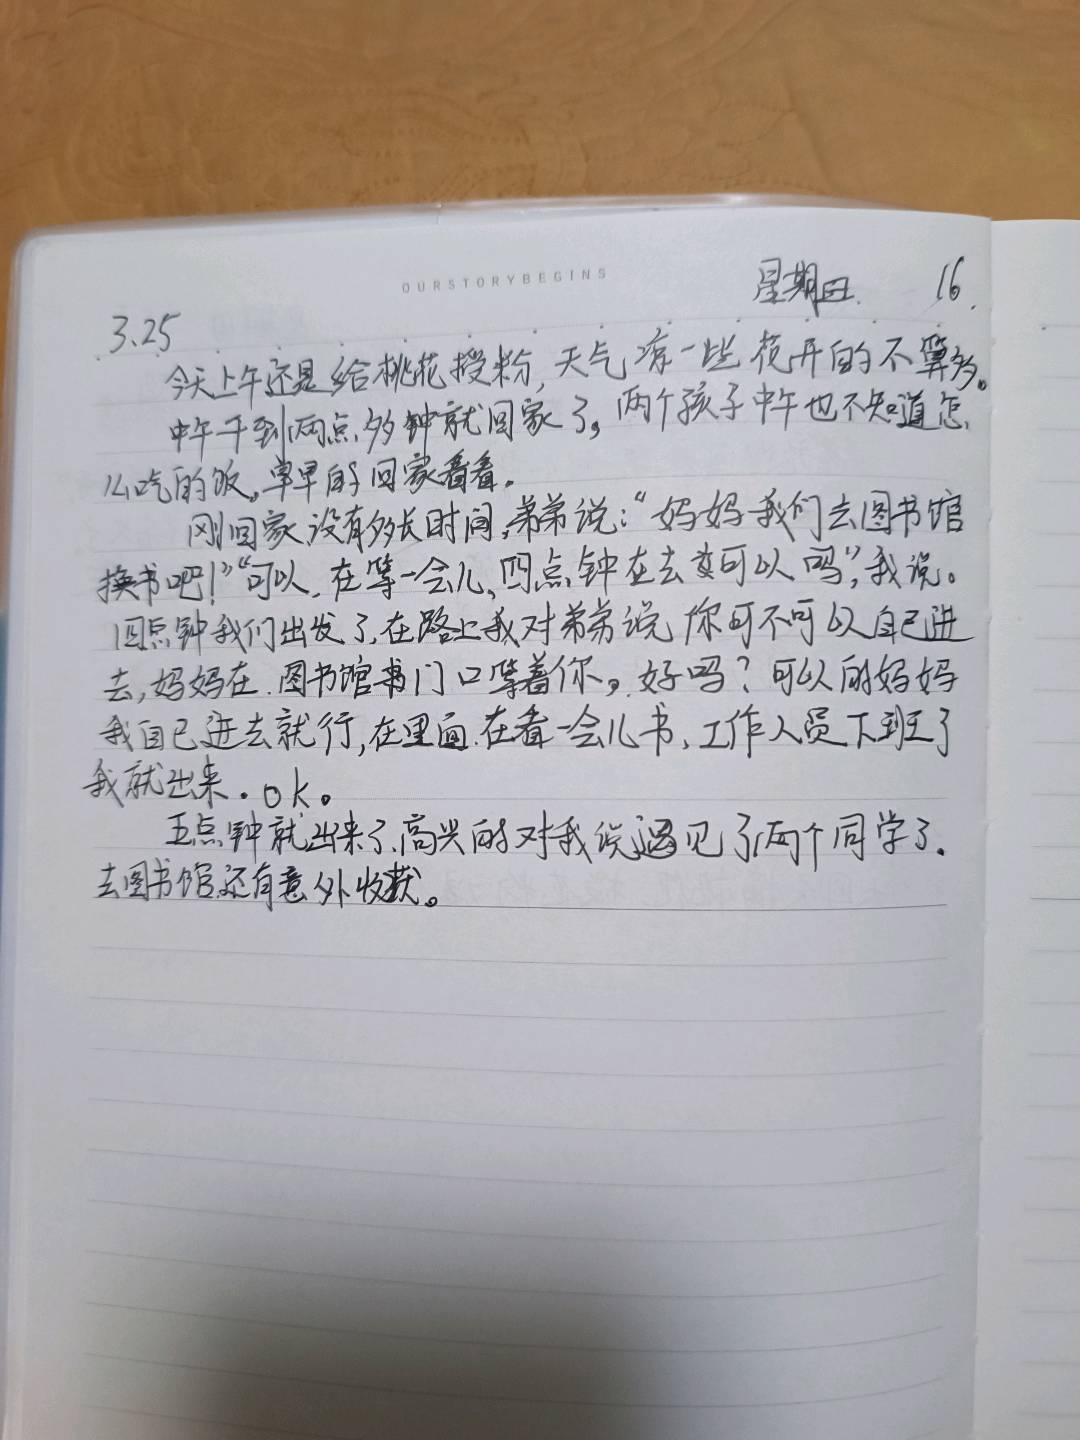 OURSTORYBEGINS
星期日 16
3.25
今天上午还是给桃花授粉,天气凉一些花开的不算多。
中午干到两点多钟就回家了,两个孩子中午也不知道怎
么吃的饭,早早的回家看看。
刚回家没有多长时间,弟弟说:“妈妈我们去图书馆
换书吧!”“可以,在等一会儿,四点钟在去可以吗”,我说。
四点钟我们出发了,在路上我对弟弟说你可不可以自己进
去,妈妈在图书馆门口等着你,好吗?可以的妈妈
我自己进去就行,在里面在看一会儿书、工作人员下班了
我就出来.ok。
五点钟就出来了、高兴的对我说遇见了两个同学了.
去图书馆还有意外收获。